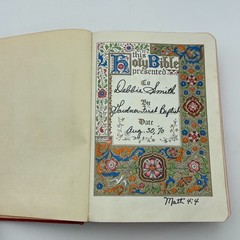 this
Holy Bible
presented
To
Debbie Smith
By
Gardner First Baptist
Date
Aug. 30, 70
Math 4:4